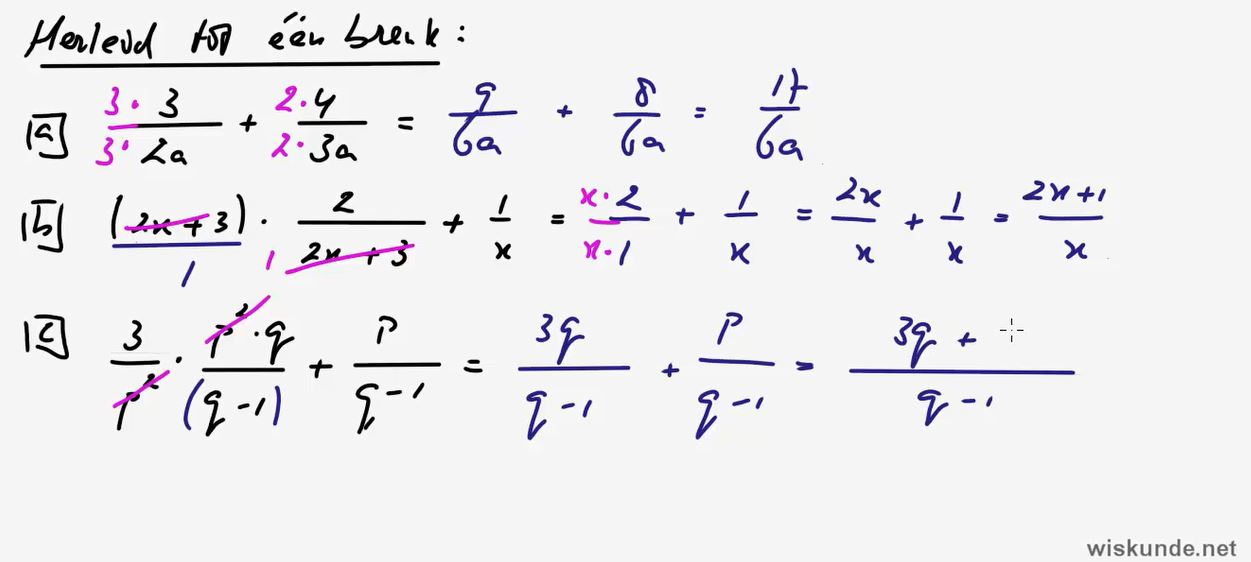 Herleid tot één breuk:
[a] 3·3/3·2a + 2·4/2·3a = 9/6a + 8/6a = 17/6a
[b] (2x+3)/1 · 2/2x+3 1 + 1/x = x·2/x·1 + 1/x = 2x/x + 1/x = 2x+1/x
[c] 3/p² · p²·q/(q-1) + p/q-1 = 3q/q-1 + p/q-1 = 3q+/q-1
wiskunde.net